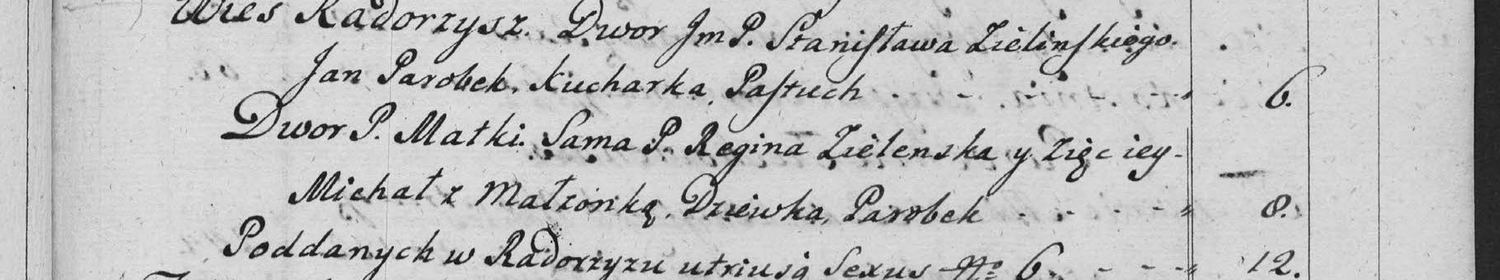 Wieś Radorzysz. Dwor Jm P. Stanisława Zielinskiego.
Jan Parobek, Kucharka, Pastuch - - - - 6.
Dwor P. Matki. Sama P. Regina Zielenska y Zięc iey -
Michał z Małżonką, Dziewka, Parobek - - - - 8.
Poddanych w Radorzyzu utriusq Sexus No 6. - - - 12.